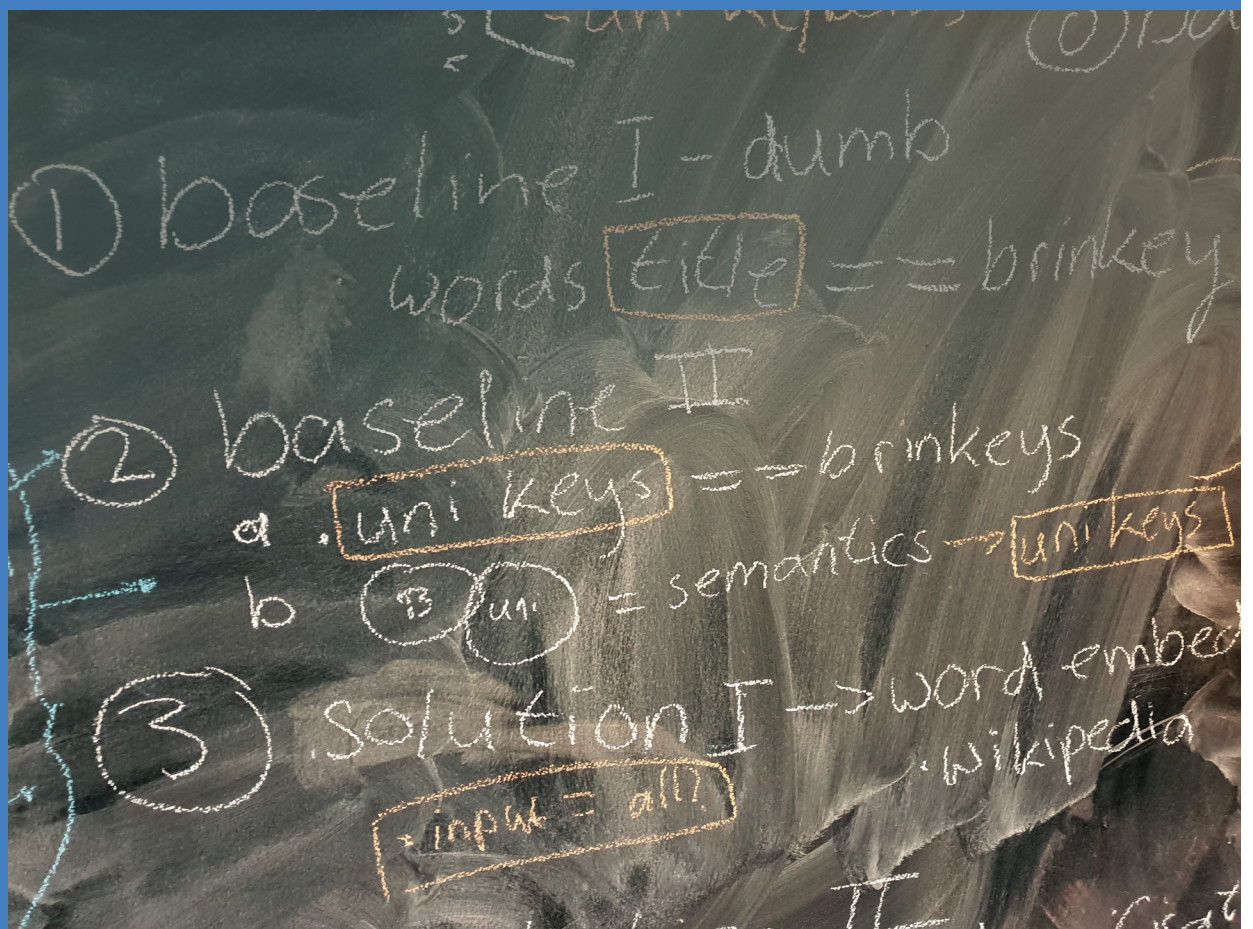 ① baseline I - dumb
words title == brinkey
② baseline II
a . uni keys == brinkeys
b B uni = semantics → unikeys
③ . solution I → word embed
. wikipedia
. input = all?
II